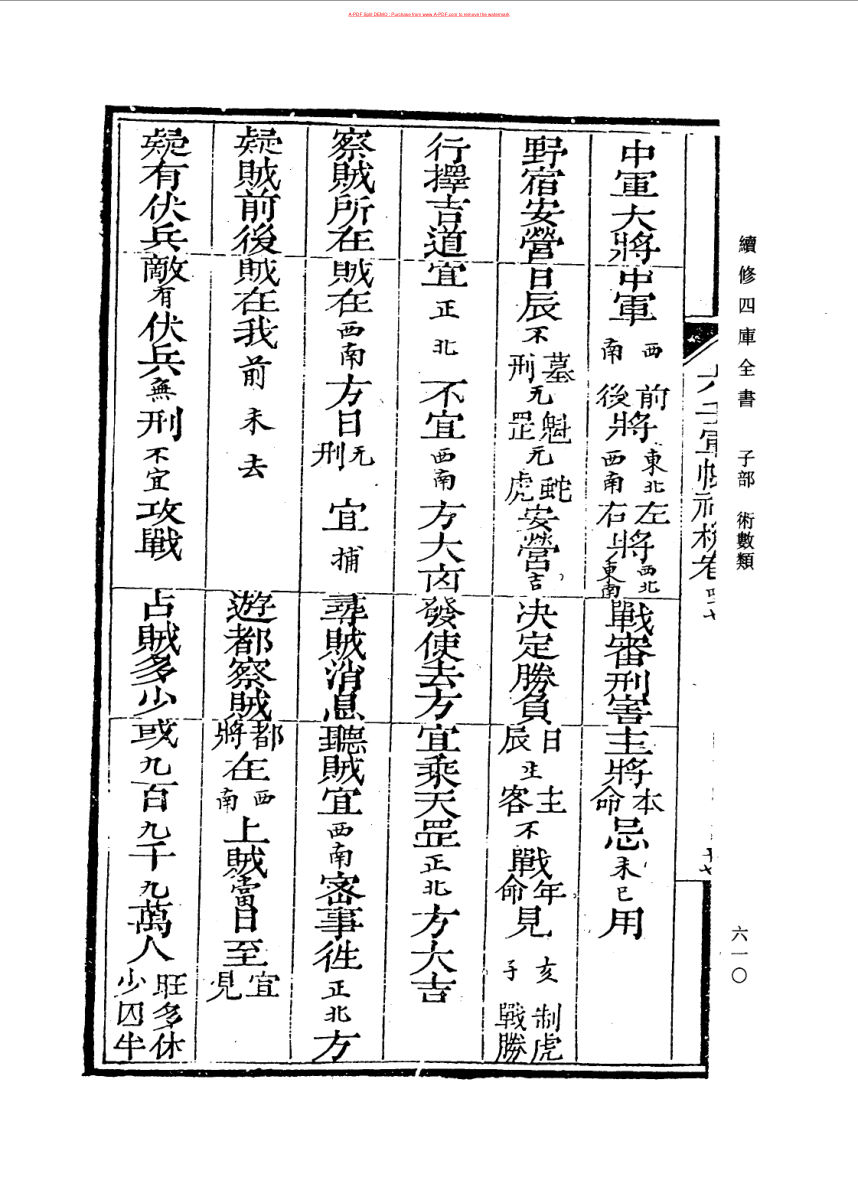 A-PDF Split DEMO : Purchase from www.A-PDF.com to remove the watermark
續修四庫全書 子部 術數類
六一〇
中軍大將中軍西南前後將東北西南左右將西北東南戰審刑害主將本命忌未巳用
野宿安營日辰不墓刑无魁罡无蛇虎安營吉決定勝負日辰主客不戰年命見亥子制虎戰勝
行擇吉道宜正北不宜西南方大凶發使去方宜乘天罡正北方大吉
察賊所在賊在西南方日无刑宜捕尋賊消息聽賊宜西南密事徃正北方
疑賊前後賊在我前未去遊都察賊都將在西南上賊當日至宜見
疑有伏兵敵有伏兵無刑不宜攻戰占賊多少或九百九千九萬人旺多休少囚半